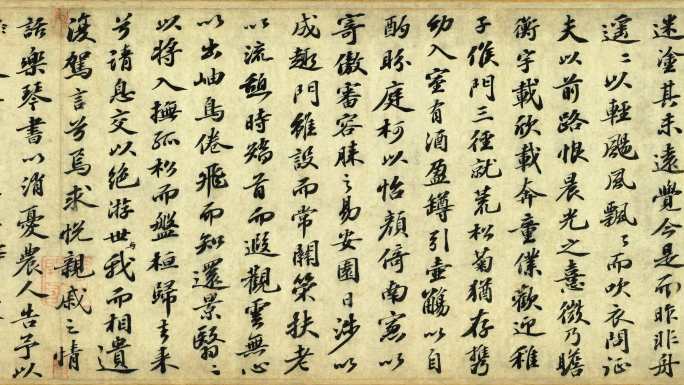 迷塗其未遠覺今是而昨非舟
遥〻以輕颺風飄〻而吹衣問征
夫以前路恨晨光之憙微乃瞻
衡宇載欣載奔童僕歡迎稚
子候門三徑就荒松菊猶存携
幼入室有酒盈罇引壺觴以自
酌眄庭柯以怡顏倚南窓以
寄傲審容膝之易安園日涉以
成趣門雖設而常關策扶老
以流憩時矯首而遐觀雲無心
以出岫鳥倦飛而知還景翳〻
以將入撫孤松而盤桓歸去来
兮請息交以絕游世與我而相遺
復駕言兮焉求悅親戚之情
話樂琴書以消憂農人告予以